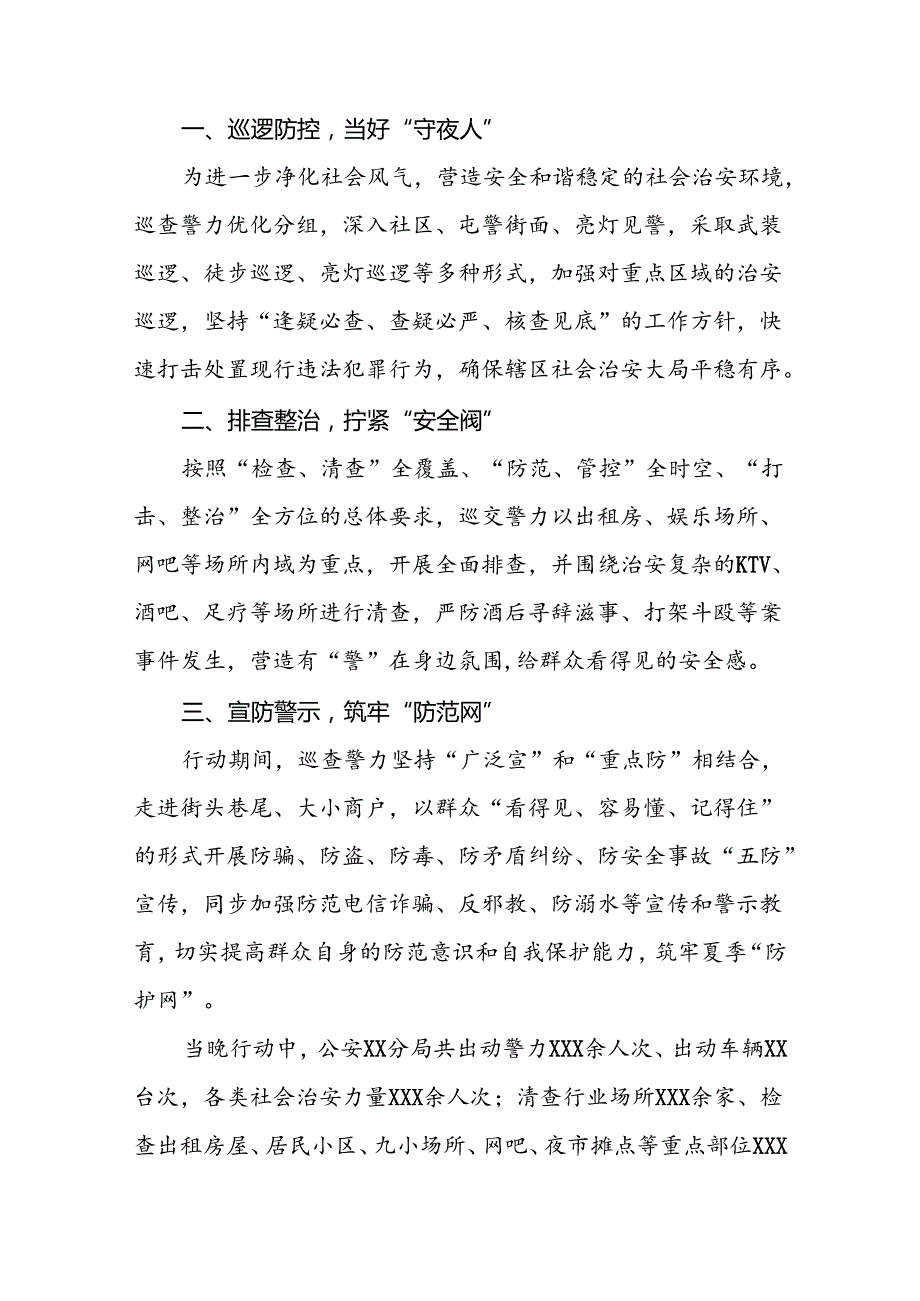 一、巡逻防控，当好“守夜人”
为进一步净化社会风气，营造安全和谐稳定的社会治安环境，
巡查警力优化分组，深入社区、屯警街面、亮灯见警，采取武装
巡逻、徒步巡逻、亮灯巡逻等多种形式，加强对重点区域的治安
巡逻，坚持“逢疑必查、查疑必严、核查见底”的工作方针，快
速打击处置现行违法犯罪行为，确保辖区社会治安大局平稳有序。
二、排查整治，拧紧“安全阀”
按照“检查、清查”全覆盖、“防范、管控”全时空、“打
击、整治”全方位的总体要求，巡交警力以出租房、娱乐场所、
网吧等场所内域为重点，开展全面排查，并围绕治安复杂的KTV、
酒吧、足疗等场所进行清查，严防酒后寻辞滋事、打架斗殴等案
事件发生，营造有“警”在身边氛围,给群众看得见的安全感。
三、宣防警示，筑牢“防范网”
行动期间，巡查警力坚持“广泛宣”和“重点防”相结合，
走进街头巷尾、大小商户，以群众“看得见、容易懂、记得住”
的形式开展防骗、防盗、防毒、防矛盾纠纷、防安全事故“五防”
宣传，同步加强防范电信诈骗、反邪教、防溺水等宣传和警示教
育，切实提高群众自身的防范意识和自我保护能力，筑牢夏季“防
护网”。
当晚行动中，公安XX分局共出动警力XXX余人次、出动车辆XX
台次，各类社会治安力量XXX余人次；清查行业场所XXX余家、检
查出租房屋、居民小区、九小场所、网吧、夜市摊点等重点部位XXX